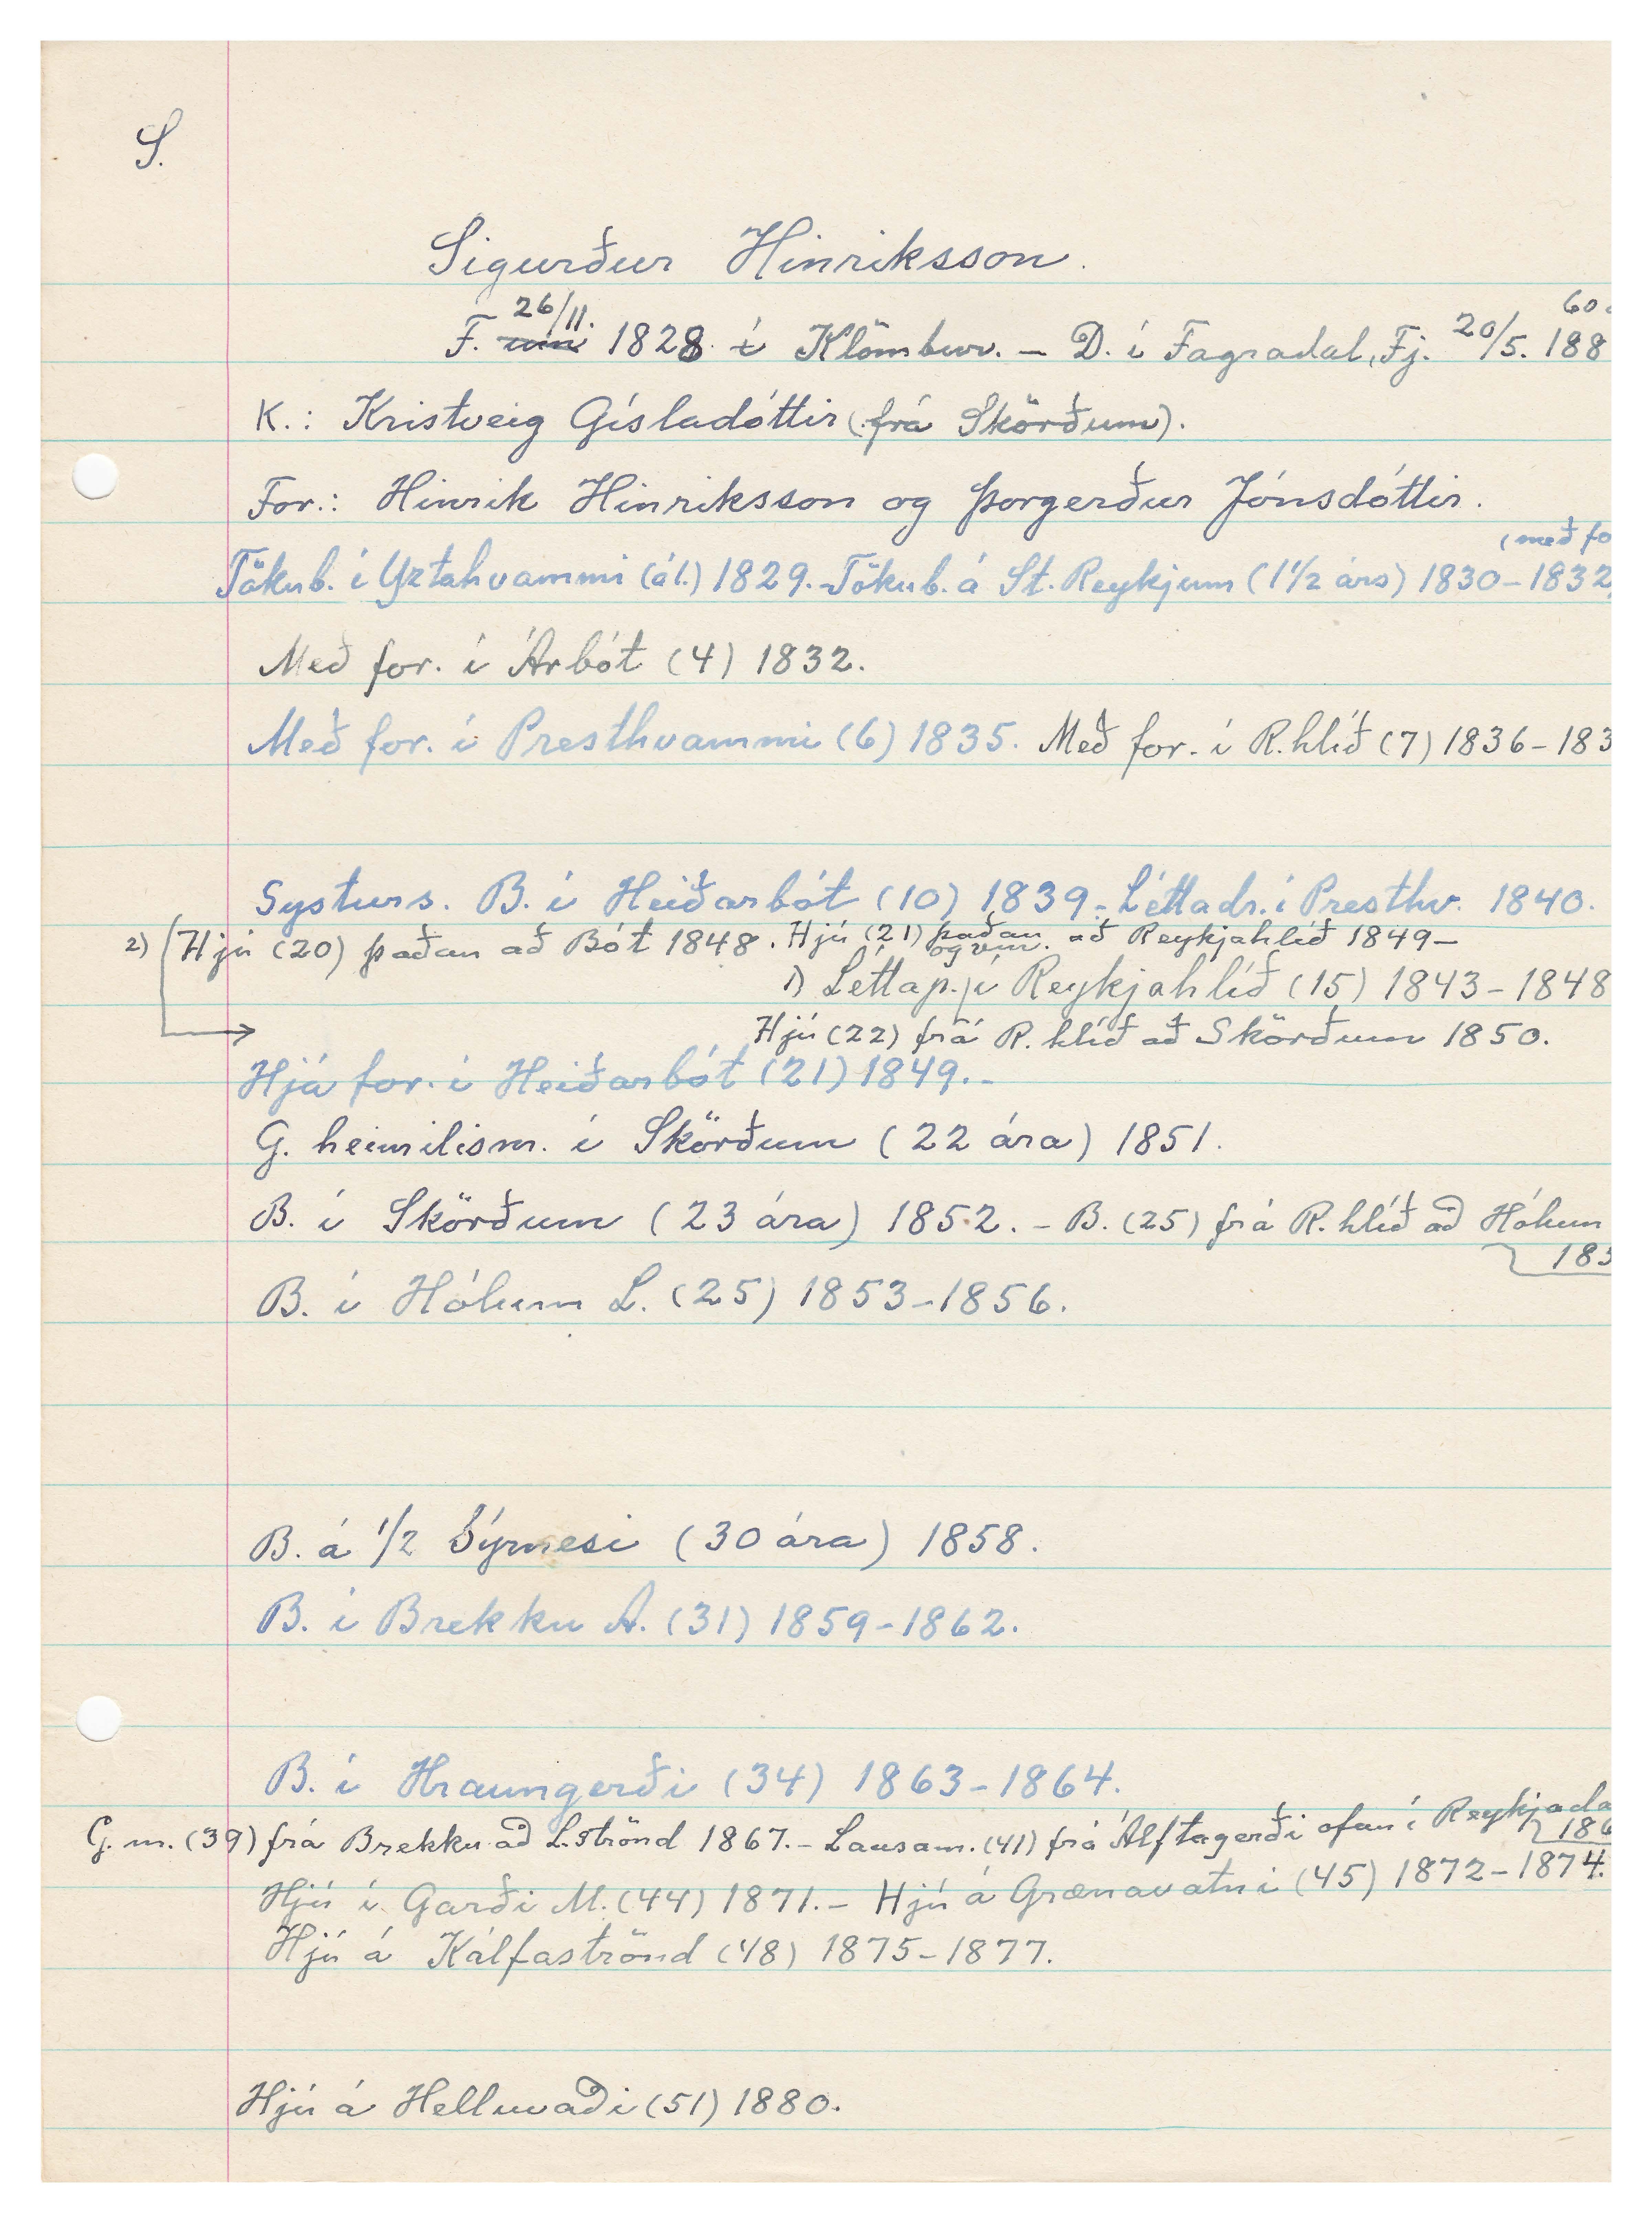 S.
Sigurður Hinriksson.
26/11. 60.
F. um 1828 í Klömbur. – D. í Fagradal, Fj. 20/5. 188
K.: Kristveig Gísladóttir (frá Skörðum).
For.: Hinrik Hinriksson og Þorgerður Jónsdóttir.
(með fo
Tökub. í Yztahvammi (á1.) 1829. – Tökub. á St. Reykjum (1 1/2 árs) 1830 – 1832,
Með for. í Árbót (4) 1832.
Með for. í Presthvammi (6) 1835. Með for. í R.hlíð (7) 1836 – 183
Systurs. B. í Heiðarbót (10) 1839. – Léttadr. í Presthv. 1840.
2) (Hjú (20) þaðan að Bót 1848. Hjú (21) þaðan að Reykjahlíð 1849 –
og vm.
1) Léttap. í Reykjahlíð (15) 1843 – 1848
Hjú (22) frá R.hlíð að Skörðum 1850.
Hjá for. í Heiðarbót (21) 1849. –
G. heimilism. í Skörðum (22 ára) 1851.
B. í Skörðum (23 ára) 1852. – B. (25) frá R.hlíð að Hólum
185
B. í Hólum L. (25) 1853 – 1856.
B. á 1/2 Sýrnesi (30 ára) 1858.
B. í Brekku A. (31) 1859 – 1862.
B. í Hraungerði (34) 1863 – 1864.
G. m. (39) frá Brekku að L.strönd 1867. – Lausam. (41) frá Álftagerði ofan í Reykjada
186
Hjú í Garði M. (44) 1871. – Hjú á Grænavatni (45) 1872 – 1874.
Hjú á Kálfaströnd (48) 1875 – 1877.
Hjú á Helluvaði (51) 1880.